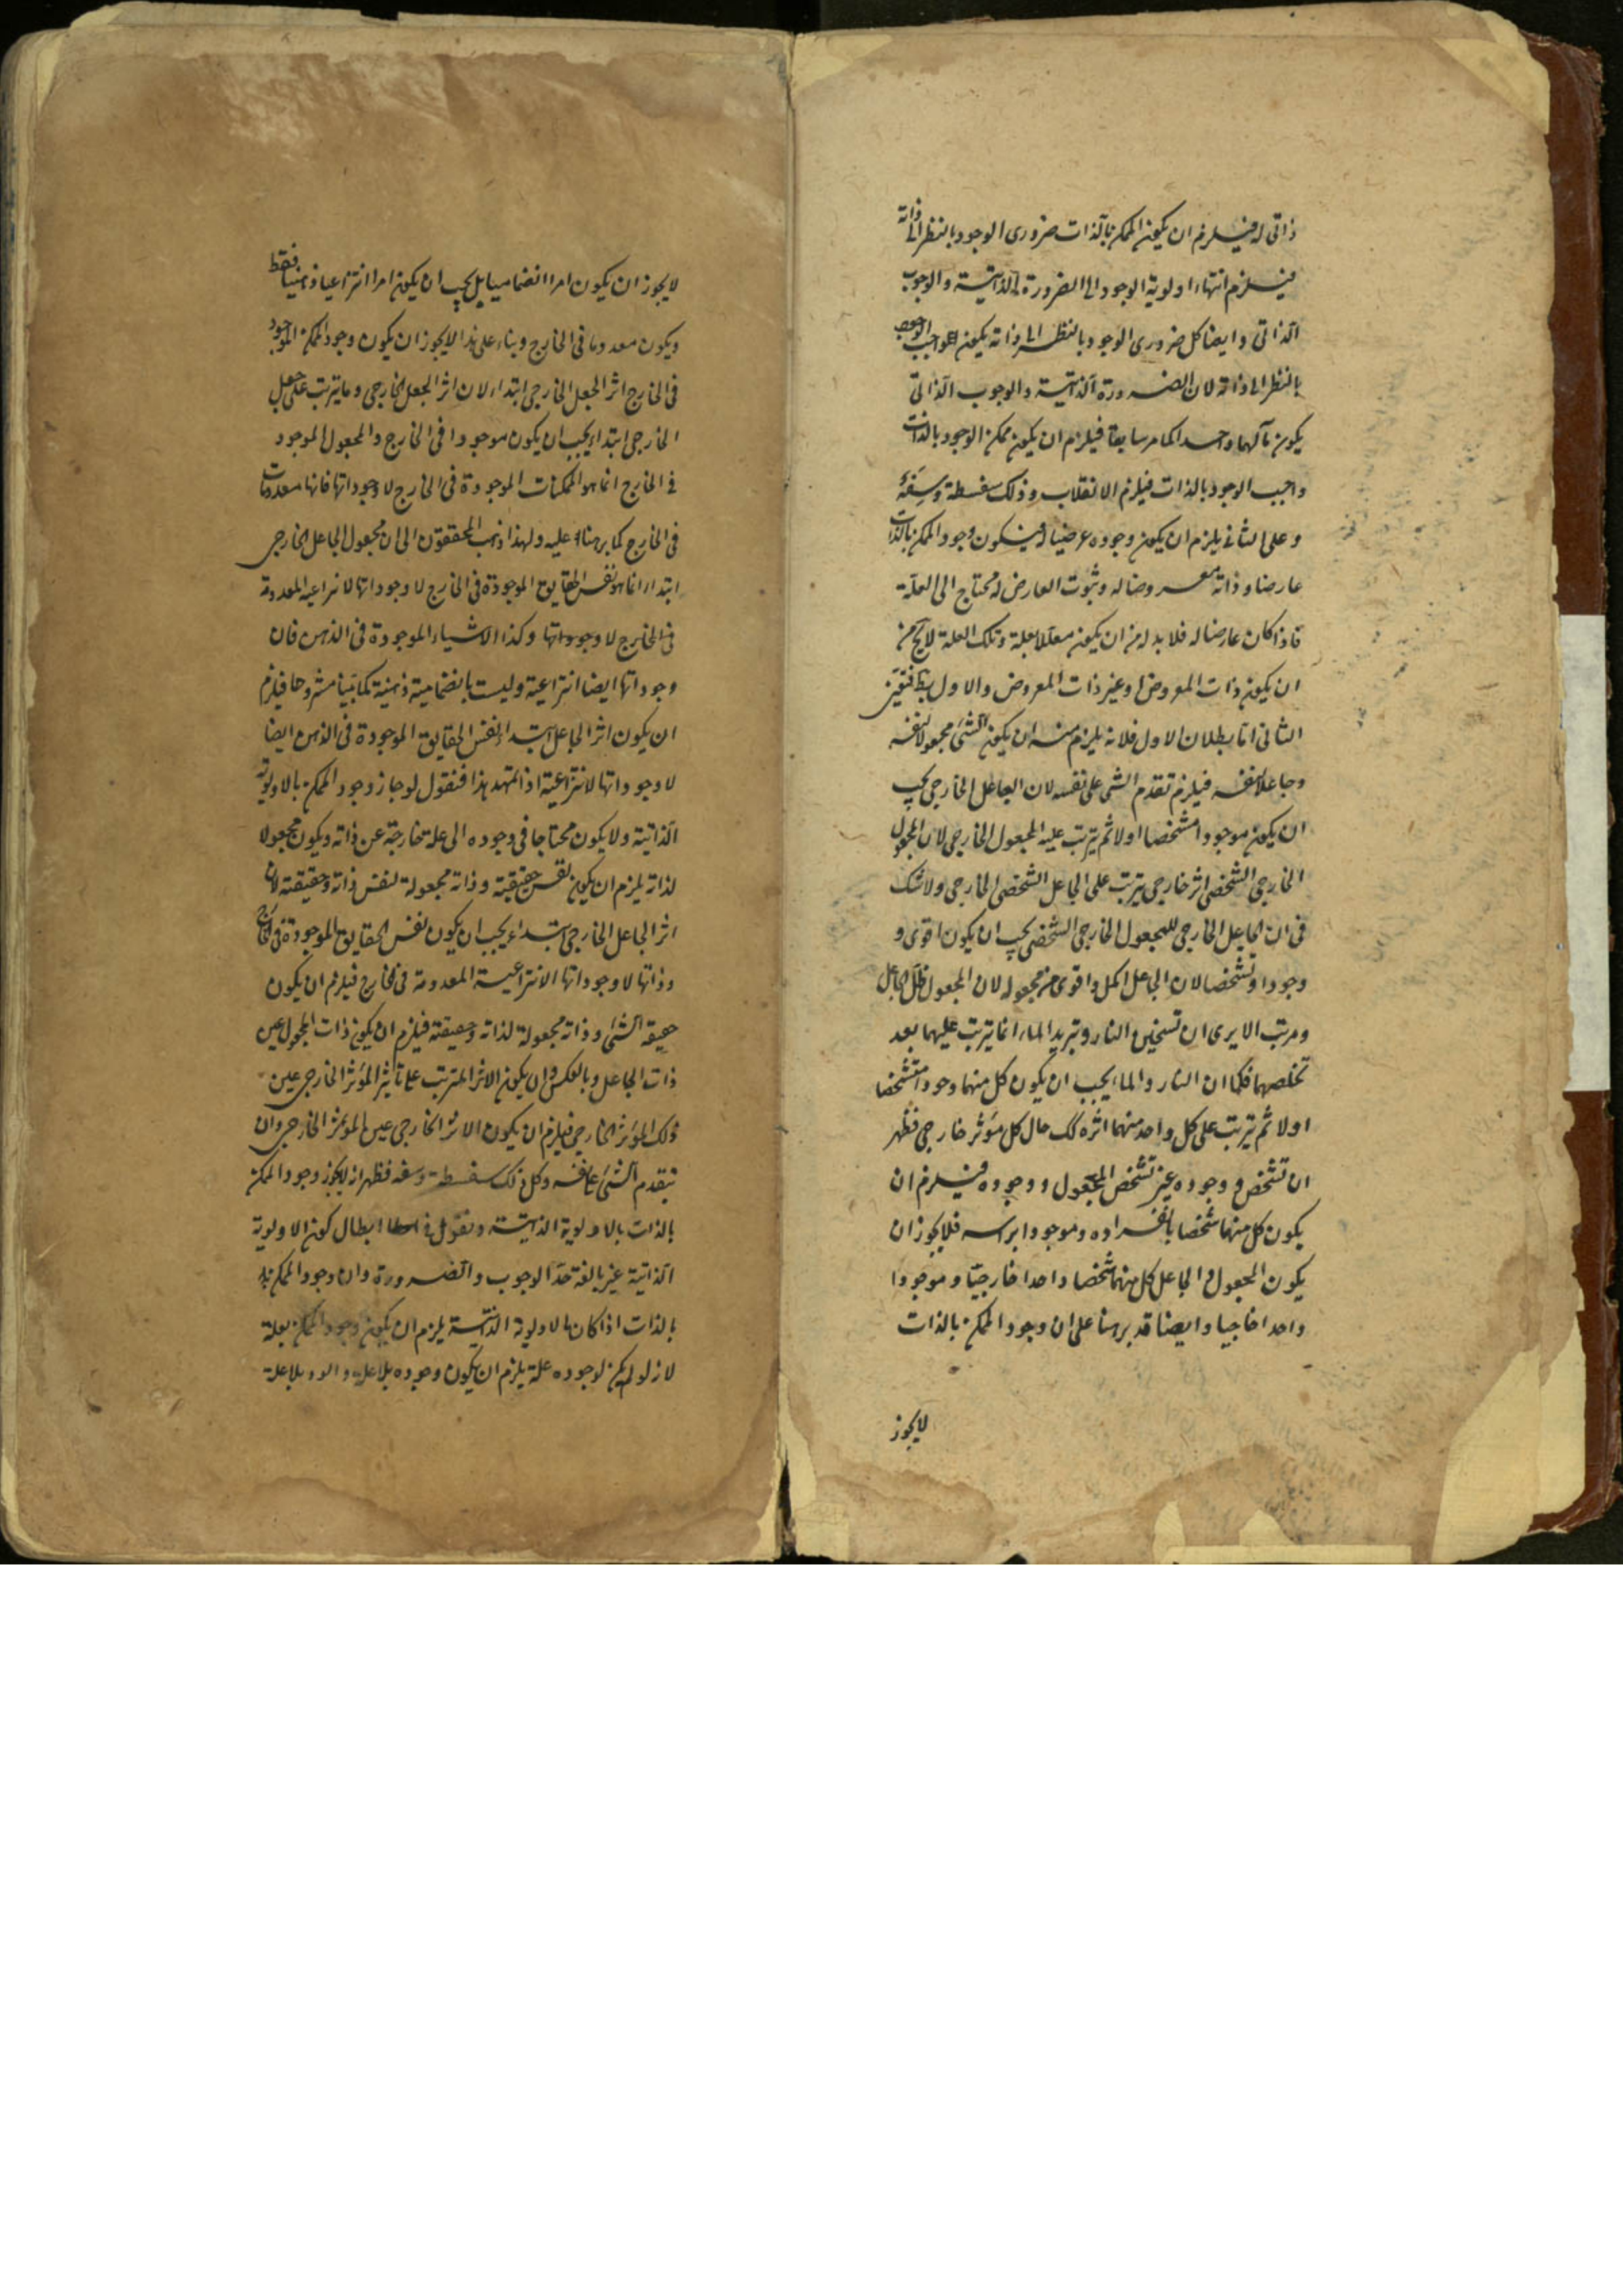 ذاتى له فيلزم ان يكون الممكن بالذات ضرورى الوجود بالنظر الى ذاته
فيلزم انتهاء اولوية الوجود الى الضرورة الذاتية والوجوب
الذاتى وايضا كل ضرورى الوجود بالنظر الى ذاته يكون واجب الوجود
بالنظر الى ذاته لان الضرورة الذاتية والوجوب الذاتى
يكون مآلهما واحدا كما مر سابقا فيلزم ان يكون ممكن الوجود بالذات
واجب الوجود بالذات فيلزم الانقلاب وذلك سفسطة وسفه
وعلى الثانى يلزم ان يكون وجوده عرضيا له فيكون وجود الممكن بالذات
عارضا وذاته معروضا له وثبوت العارض له محتاج الى العلة
فاذا كان عارضا له فلا بد له من ان يكون معللا بعلة وتلك العلة لا يخ من
ان يكون ذات المعروض او غير ذات المعروض والاول بط فتعين
الثانى اما بطلان الاول فلانه يلزم منه ان يكون الشئ مجعولا لنفسه
وجاعلا لنفسه فيلزم تقدم الشئ على نفسه لان الجاعل الخارجى يجب
ان يكون موجودا مشخصا اولا ثم يترتب عليه المجعول الخارجى لان المجعول
الخارجى الشخصى اثر خارجى يترتب على الجاعل الشخصى الخارجى ولا شك
فى ان الجاعل الخارجى للمجعول الخارجى الشخصى يجب ان يكون اقوى و
وجودا وتشخصا لان الجاعل اكمل واقوى من مجعوله لان المجعول ظل الجاعل
ومرتب الا يرى ان تسخين النار وتبريد الماء انما يترتب عليهما بعد
تخلصهما فكما ان النار والماء يجب ان يكون كل منهما وجودا متشخصا
اولا ثم يترتب على كل واحد منهما اثره كك حال كل مؤثر خارجى فظهر
ان تشخص ووجوده غير تشخص المجعول ووجوده فيلزم ان
يكون كل منهما شخصا بانفراده وموجودا براسه فلا يجوز ان
يكون المجعول والجاعل كل منهما شخصا واحدا خارجيا وموجودا
واحدا خاجيا وايضا قد برهنا على ان وجود الممكن بالذات
لا يجوز
لا يجوز ان يكون امرا انضماميا بل يجب ان يكون امرا انتزاعيا ذهنيا فقط
ويكون معدوما فى الخارج وبناء على هذا لا يجوز ان يكون وجود الممكن الموجود
فى الخارج اثر الجعل الخارجى ابتداء لان اثر الجعل الخارجى وما يترتب على جعل
الخارجى ابتداء يجب ان يكون موجودا فى الخارج والمجعول الموجود
فى الخارج انما هو الممكنات الموجودة فى الخارج لا وجوداتها فانها معدومات
فى الخارج كما برهنا عليه ولهذا ذهب المحققون الى ان مجعول الجاعل الخارجى
ابتداء انما هو نفس الحقايق الموجودة فى الخارج لا وجوداتها الانتزاعية المعدومة
فى الخارج لا وجوداتها وكذا الاشياء الموجودة فى الذهن فان
وجوداتها ايضا انتزاعية وليست بانضمامية ذهنية كما بينا مشروحا فيلزم
ان يكون اثر الجاعل ابتداء نفس الحقايق الموجودة فى الذهن ايضا
لا وجوداتها الانتزاعية اذا تمهد هذا فنقول لو جاز وجود الممكن بالاولوية
الذاتية ولا يكون محتاجا فى وجوده الى علة خارجة عن ذاته ويكون مجعولا
لذاته يلزم ان يكون نفس حقيقته وذاته مجعولة لنفس ذاته وحقيقته لان
اثر الجاعل الخارجى ابتداء يجب ان يكون نفس الحقايق الموجودة فى الخارج
وذاتها لا وجوداتها الانتزاعية المعدومة فى الخارج فيلزم ان يكون
حقيقة الشئ وذاته مجعولة لذاته وحقيقته فيلزم ان يكون ذات المجعول عين
ذات الجاعل وبالعكس وان يكون الاثر المترتب على تاثير المؤثر الخارجى عين
ذلك المؤثر الخارجى فيلزم ان يكون الاثر الخارجى عين المؤثر الخارجى وان
يتقدم الشئ على نفسه وكل ذلك سفسطة وسفه فظهر انه لا يجوز وجود الممكن
بالذات بالاولوية الذاتية ونقول فى ابطال كون الاولوية
الذاتية غير بالغة حد الوجوب والضرورة وان وجود الممكن
بالذات اذا كان بالاولوية الذاتية يلزم ان يكون وجود الممكن بعلة
لانه لو لم يكن لوجوده علة يلزم ان يكون وجوده بلا علة بلا علة